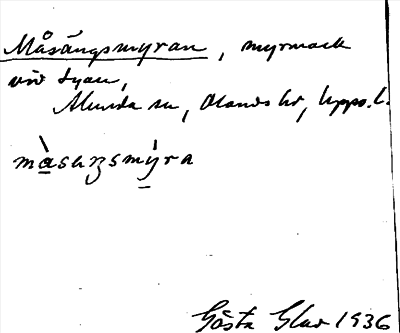 Måsängsmyran, myrmack
vid Lyan,
Alunda sn, Olands hd, Upps. l.
màsaŋsmýra
Gösta Glav 1936